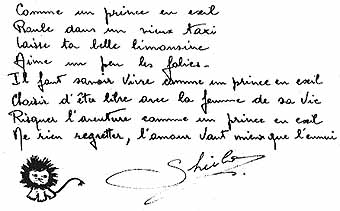 Comme un prince en exil
Roule dans un vieux taxi
Laisse ta belle limousine
Aime un peu les folies.
Il faut savoir vivre comme un prince en exil
Choisir d'être libre avec la femme de sa vie
Risquer l'aventure comme un prince en exil
Ne rien regretter, l'amour vaut mieux que l'ennui
Sheila